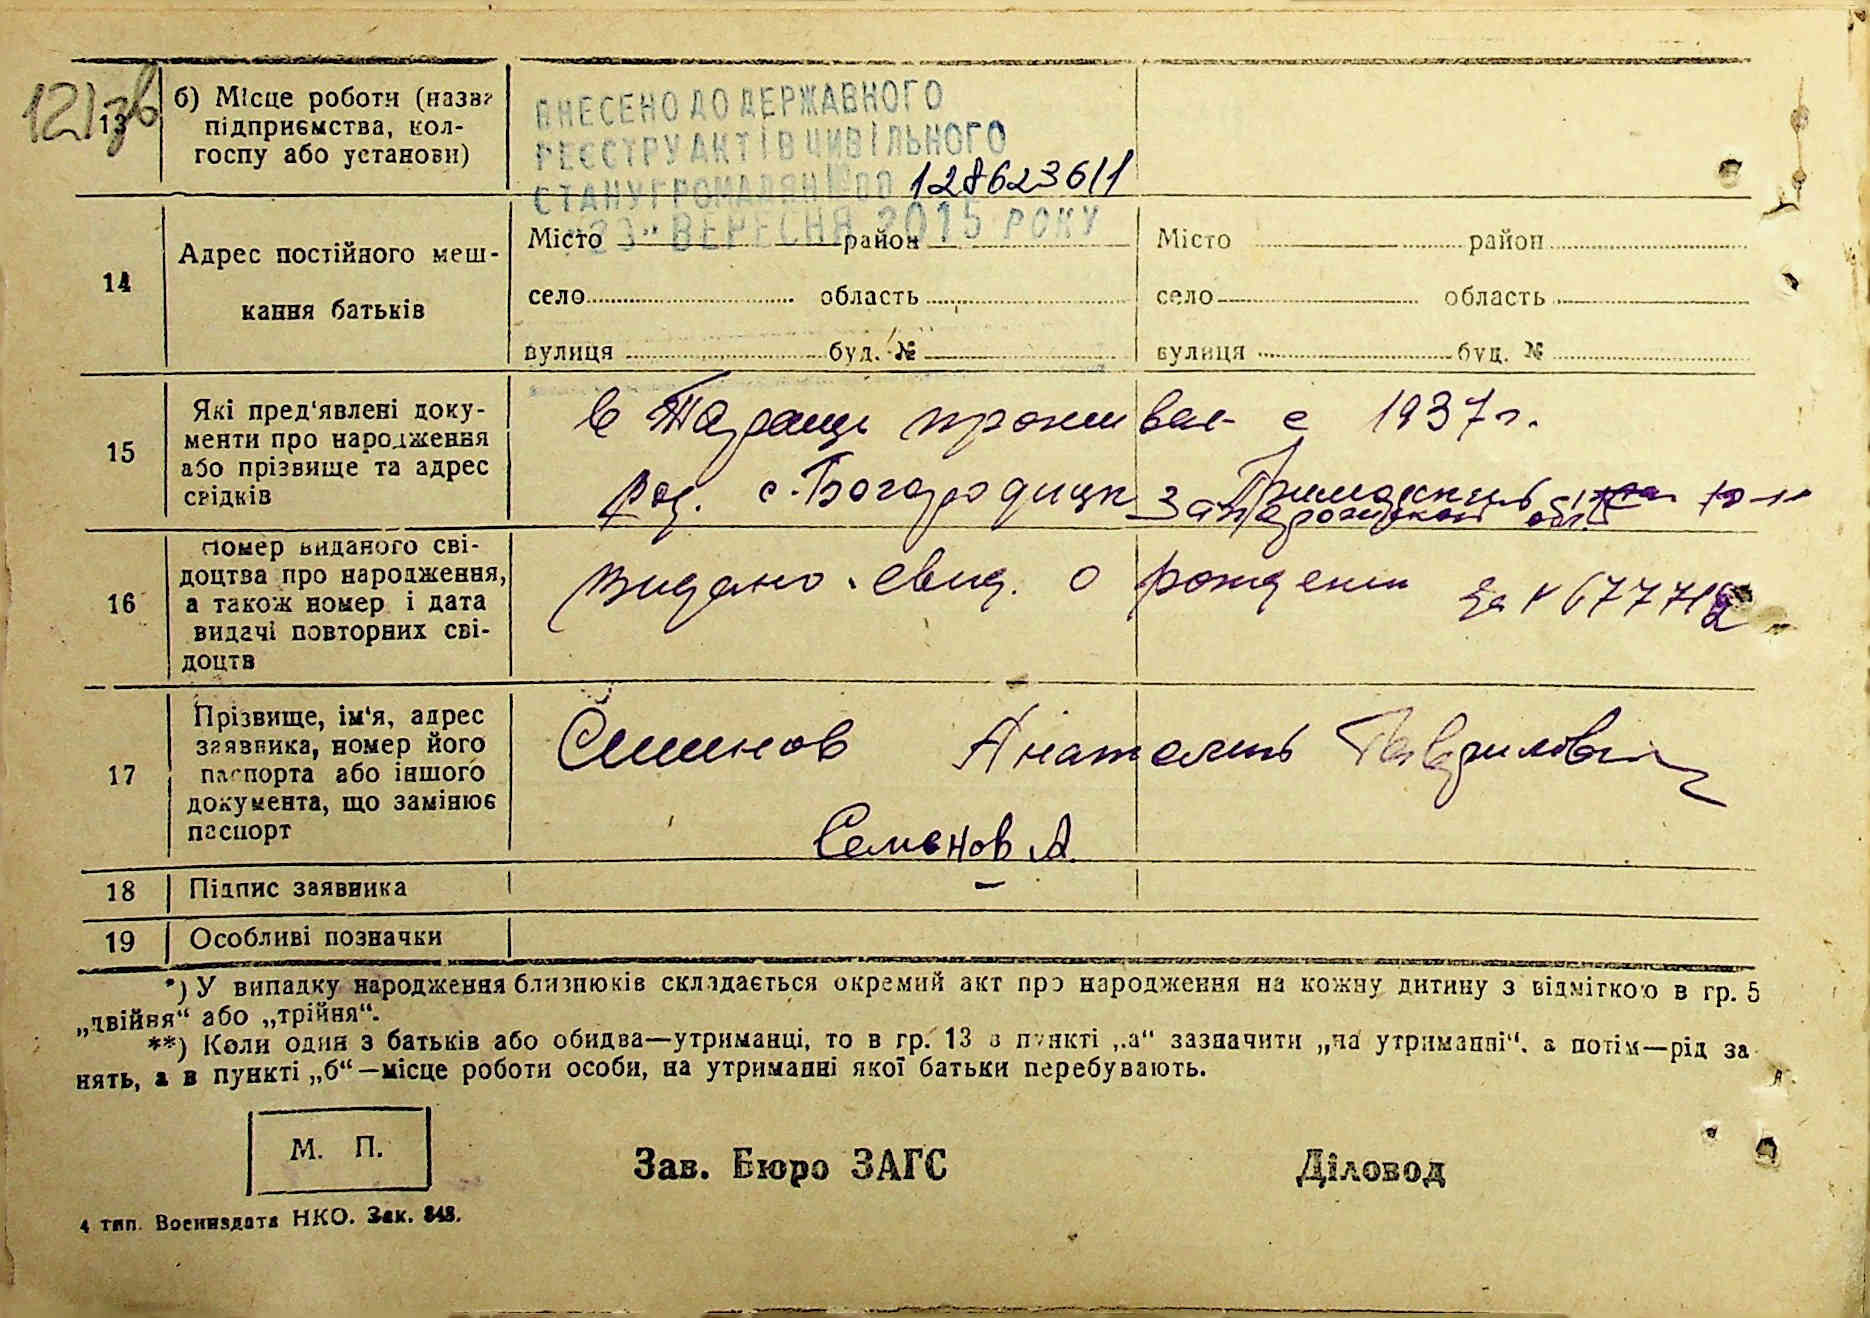 121зв
13
б) Місце роботи (назва
підприємства, кол-
госпу або установи)
ВНЕСЕНО ДО ДЕРЖАВНОГО
РЕЄСТРУ АКТІВ ЦИВІЛЬНОГО
СТАНУ ГРОМАДЯН 128623611
"23" ВЕРЕСНЯ 2015 РОКУ
14
Адрес постійного меш-
кання батьків
Місто район
село область
вулиця буд. №
Місто район
село область
вулиця буд. №
15
Які пред'явлені доку-
менти про народження
або прізвище та адрес
свідків
в Таращи прожив с 1937г.
род. с. Богородицк
Запорожской обл.
16
Номер виданого сві-
доцтва про народження,
а також номер і дата
видачі повторних сві-
доцтв
Видано свид. о рожден за №
17
Прізвище, ім'я, адрес
заявника, номер його
паспорта або іншого
документа, що замінює
паспорт
Семенов Анатолий Гаврилович
Семенов А.
18
Підпис заявника
19
Особливі позначки
*) У випадку народження близнюків складається окремий акт про народження на кожну дитину з відміткою в гр. 5
„двійня“ або „трійня“.
**) Коли один з батьків або обидва—утриманці, то в гр. 13 в пункті „а“ зазначити „на утриманні“, а потім—рід за
нять, а в пункті „б“—місце роботи особи, на утриманні якої батьки перебувають.
М. П.
Зав. Бюро ЗАГС
Діловод
4 тип. Воениздата НКО. Зак. 848.